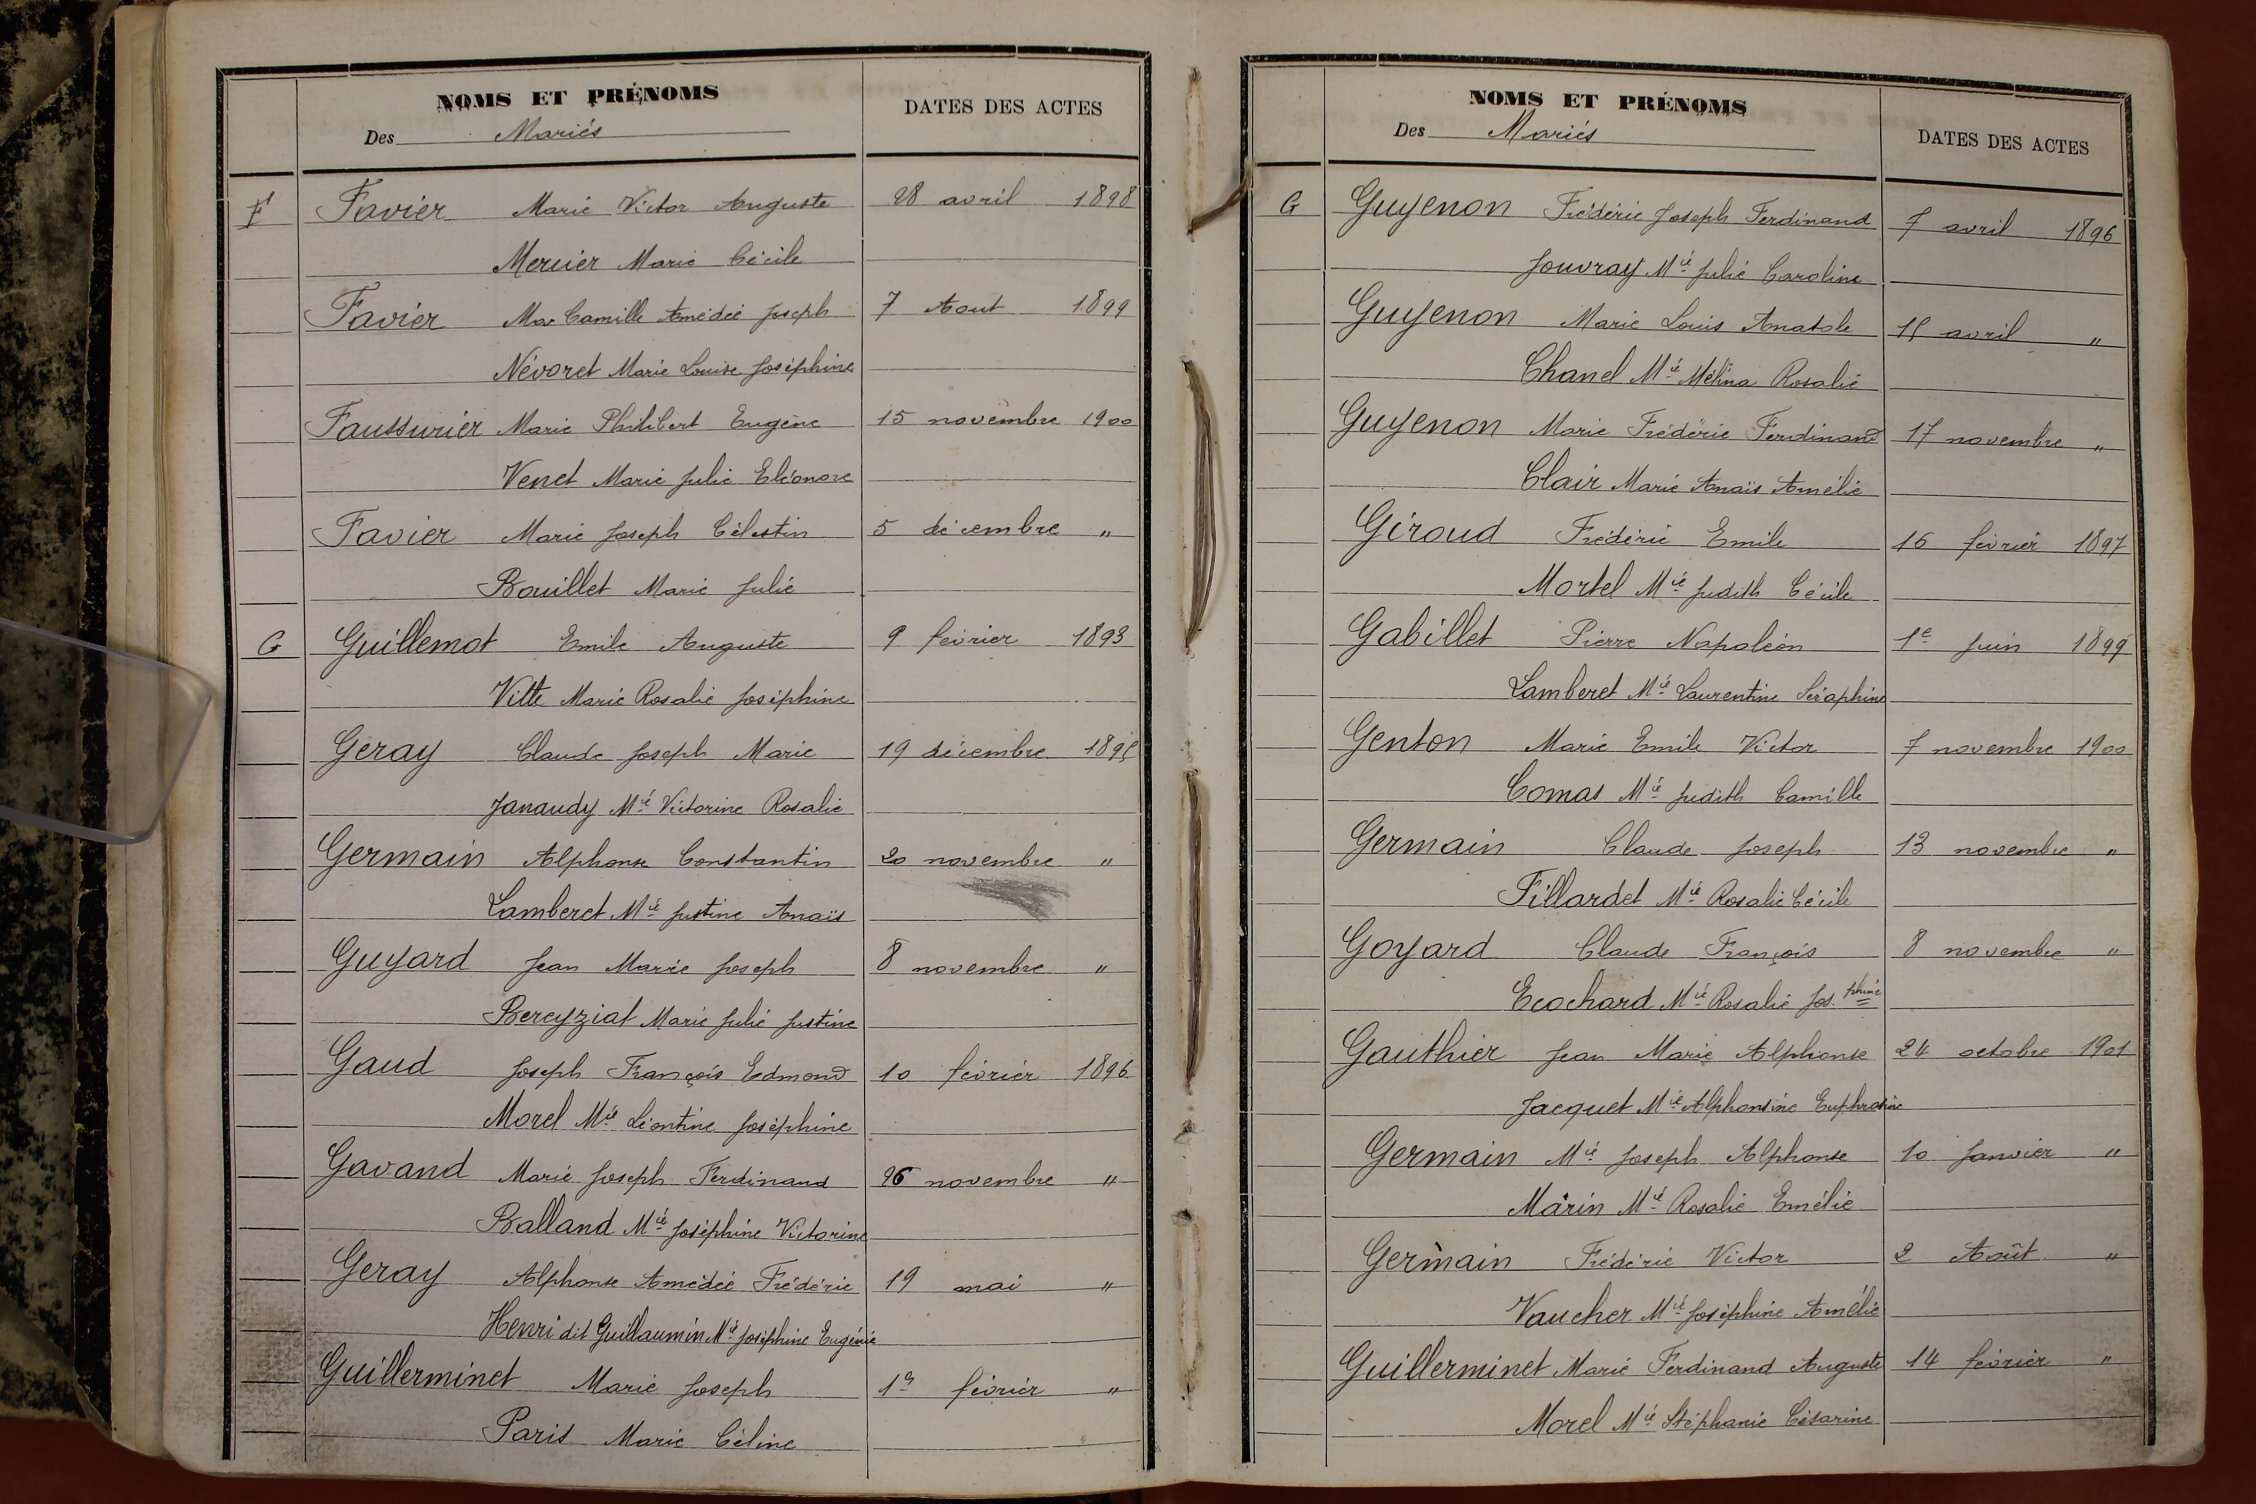 NOMS ET PRÉNOMS
Des Mariés
DATES DES ACTES
F Favier Marie Victor Auguste 28 avril 1898
Mercier Marie Cécile
Favier Mar Camille Amédée Joseph 7 Aout 1899
Névoret Marie Louise Joséphine
Faussurier Marie Philibert Eugène 15 novembre 1900
Venet Marie Julie Eléonore
Favier Marie Joseph Célestin 5 décembre "
Bouillet Marie Julie
G Guillemot Emile Auguste 9 février 1893
Vitte Marie Rosalie Joséphine
Geray Claude Joseph Marie 19 décembre
Janaudy Mie Victorine Rosalie
Germain Alphonse Constantin 20 novembre "
Lamberet Mie Justine Anaïs
Guyard Jean Marie Joseph 8 novembre "
Bereyziat Marie Julie Justine
Gaud Joseph François Edmond 10 février 1896
Morel Mie Léontine Joséphine
Gavand Marie Joseph Ferdinand 26 novembre "
Balland Mie Joséphine Victorine
Geray Alphonse Amédée Frédéric 19 mai "
Henri dit Guillaumin Mie Joséphine Eugénie
Guillerminet Marie Joseph février "
Paris Marie Céline
NOMS ET PRÉNOMS
Des Mariés
DATES DES ACTES
G Guyenon Frédéric Joseph Ferdinand 7 avril 1896
Jouvray Mie Julie Caroline
Guyenon Marie Louis Anatole avril "
Chanel Mie Mélina Rosalie
Guyenon Marie Frédéric Ferdinand 17 novembre "
Clair Marie Anaïs Amélie
Giroud Frédéric Emile 16 février 1897
Mortel Mie Judith Cécile
Gabillet Pierre Napoléon 1e Juin 1899
Lamberet Mie Laurentine Séraphine
Genton Marie Emile Victor 7 novembre 1900
Comas Mie Judith Camille
Germain Claude Joseph 13 novembre "
Fillardet Mie Rosalie Cécile
Goyard Claude François 8 novembre "
Ecochard Mie Rosalie Jos.phine
Gauthier Jean Marie Alphonse 24 octobre 1901
Jacquet Mie Alphonsine Euphrosine
Germain Mie Joseph Alphonse 10 Janvier "
Marin Mie Rosalie Emélie
Germain Frédéric Victor 2 Août "
Vaucher Mie Joséphine Amélie
Guillerminet Marie Ferdinand Auguste 14 février "
Morel Mie Stéphanie Césarine